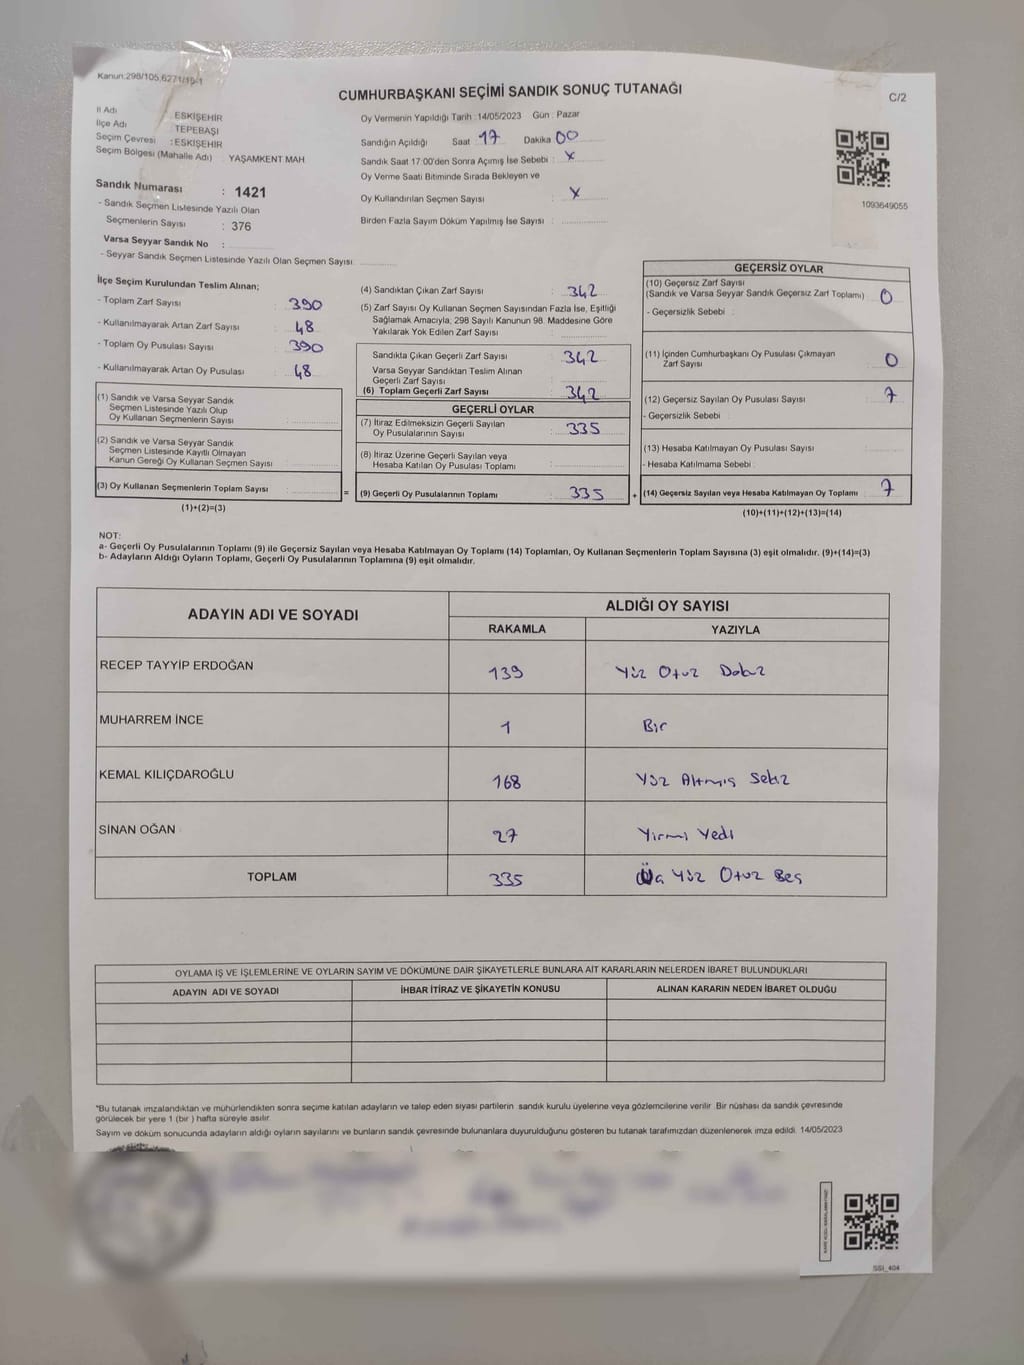 Kanun:298/105,6271/19-1
CUMHURBAŞKANI SEÇİMİ SANDIK SONUÇ TUTANAĞI
C/2
İl Adı : ESKİŞEHİR
İlçe Adı : TEPEBAŞI
Seçim Çevresi : ESKİŞEHİR
Seçim Bölgesi (Mahalle Adı) : YAŞAMKENT MAH.
Sandık Numarası : 1421
- Sandık Seçmen Listesinde Yazılı Olan
Seçmenlerin Sayısı : 376
Varsa Seyyar Sandık No :
- Seyyar Sandık Seçmen Listesinde Yazılı Olan Seçmen Sayısı
Oy Vermenin Yapıldığı Tarih :14/05/2023 Gün : Pazar
Sandığın Açıldığı Saat 17 Dakika 00
Sandık Saat 17:00'den Sonra Açımış İse Sebebi : X
Oy Verme Saati Bitiminde Sırada Bekleyen ve
Oy Kullandırılan Seçmen Sayısı : X
Birden Fazla Sayım Döküm Yapılmış İse Sayısı :
1093649055
İlçe Seçim Kurulundan Teslim Alınan;
- Toplam Zarf Sayısı : 390
- Kullanılmayarak Artan Zarf Sayısı : 48
- Toplam Oy Pusulası Sayısı : 390
- Kullanılmayarak Artan Oy Pusulası : 48
(1) Sandık ve Varsa Seyyar Sandık
Seçmen Listesinde Yazılı Olup
Oy Kullanan Seçmenlerin Sayısı :
(2) Sandık ve Varsa Seyyar Sandık
Seçmen Listesinde Kayıtlı Olmayan
Kanun Gereği Oy Kullanan Seçmen Sayısı :
(3) Oy Kullanan Seçmenlerin Toplam Sayısı : =
(1)+(2)=(3)
(4) Sandıktan Çıkan Zarf Sayısı : 342
(5) Zarf Sayısı Oy Kullanan Seçmen Sayısından Fazla İse, Eşitliği
Sağlamak Amacıyla; 298 Sayılı Kanunun 98. Maddesine Göre
Yakılarak Yok Edilen Zarf Sayısı :
Sandıkta Çıkan Geçerli Zarf Sayısı : 342
Varsa Seyyar Sandıktan Teslim Alınan
Geçerli Zarf Sayısı :
(6) Toplam Geçerli Zarf Sayısı : 342
GEÇERLİ OYLAR
(7) İtiraz Edilmeksizin Geçerli Sayılan
Oy Pusulalarının Sayısı : 335
(8) İtiraz Üzerine Geçerli Sayılan veya
Hesaba Katılan Oy Pusulası Toplamı :
(9) Geçerli Oy Pusulalarının Toplamı : 335 +
GEÇERSİZ OYLAR
(10) Geçersiz Zarf Sayısı
(Sandık ve Varsa Seyyar Sandık Geçersiz Zarf Toplamı) : 0
- Geçersizlik Sebebi :
(11) İçinden Cumhurbaşkanı Oy Pusulası Çıkmayan
Zarf Sayısı : 0
(12) Geçersiz Sayılan Oy Pusulası Sayısı : 7
- Geçersizlik Sebebi :
(13) Hesaba Katılmayan Oy Pusulası Sayısı :
- Hesaba Katılmama Sebebi :
(14) Geçersiz Sayılan veya Hesaba Katılmayan Oy Toplamı : 7
(10)+(11)+(12)+(13)=(14)
NOT:
a- Geçerli Oy Pusulalarının Toplamı (9) ile Geçersiz Sayılan veya Hesaba Katılmayan Oy Toplamı (14) Toplamları, Oy Kullanan Seçmenlerin Toplam Sayısına (3) eşit olmalıdır. (9)+(14)=(3)
b- Adayların Aldığı Oyların Toplamı, Geçerli Oy Pusulalarının Toplamına (9) eşit olmalıdır.
ADAYIN ADI VE SOYADI ALDIĞI OY SAYISI
RAKAMLA YAZIYLA
RECEP TAYYİP ERDOĞAN 139 Yüz Otuz Dokuz
MUHARREM İNCE 1 Bir
KEMAL KILIÇDAROĞLU 168 Yüz Altmış Sekiz
SİNAN OĞAN 27 Yirmi Yedi
TOPLAM 335 Üç Yüz Otuz Beş
OYLAMA İŞ VE İŞLEMLERİNE VE OYLARIN SAYIM VE DÖKÜMÜNE DAİR ŞİKAYETLERLE BUNLARA AİT KARARLARIN NELERDEN İBARET BULUNDUKLARI
ADAYIN ADI VE SOYADI İHBAR İTİRAZ VE ŞİKAYETİN KONUSU ALINAN KARARIN NEDEN İBARET OLDUĞU
*Bu tutanak imzalandıktan ve mühürlendikten sonra seçime katılan adayların ve talep eden siyasi partilerin sandık kurulu üyelerine veya gözlemcilerine verilir. Bir nüshası da sandık çevresinde
görülecek bir yere 1 (bir ) hafta süreyle asılır.
Sayım ve döküm sonucunda adayların aldığı oyların sayılarını ve bunların sandık çevresinde bulunanlara duyurulduğunu gösteren bu tutanak tarafımızdan düzenlenerek imza edildi. 14/05/2023
SSI_404